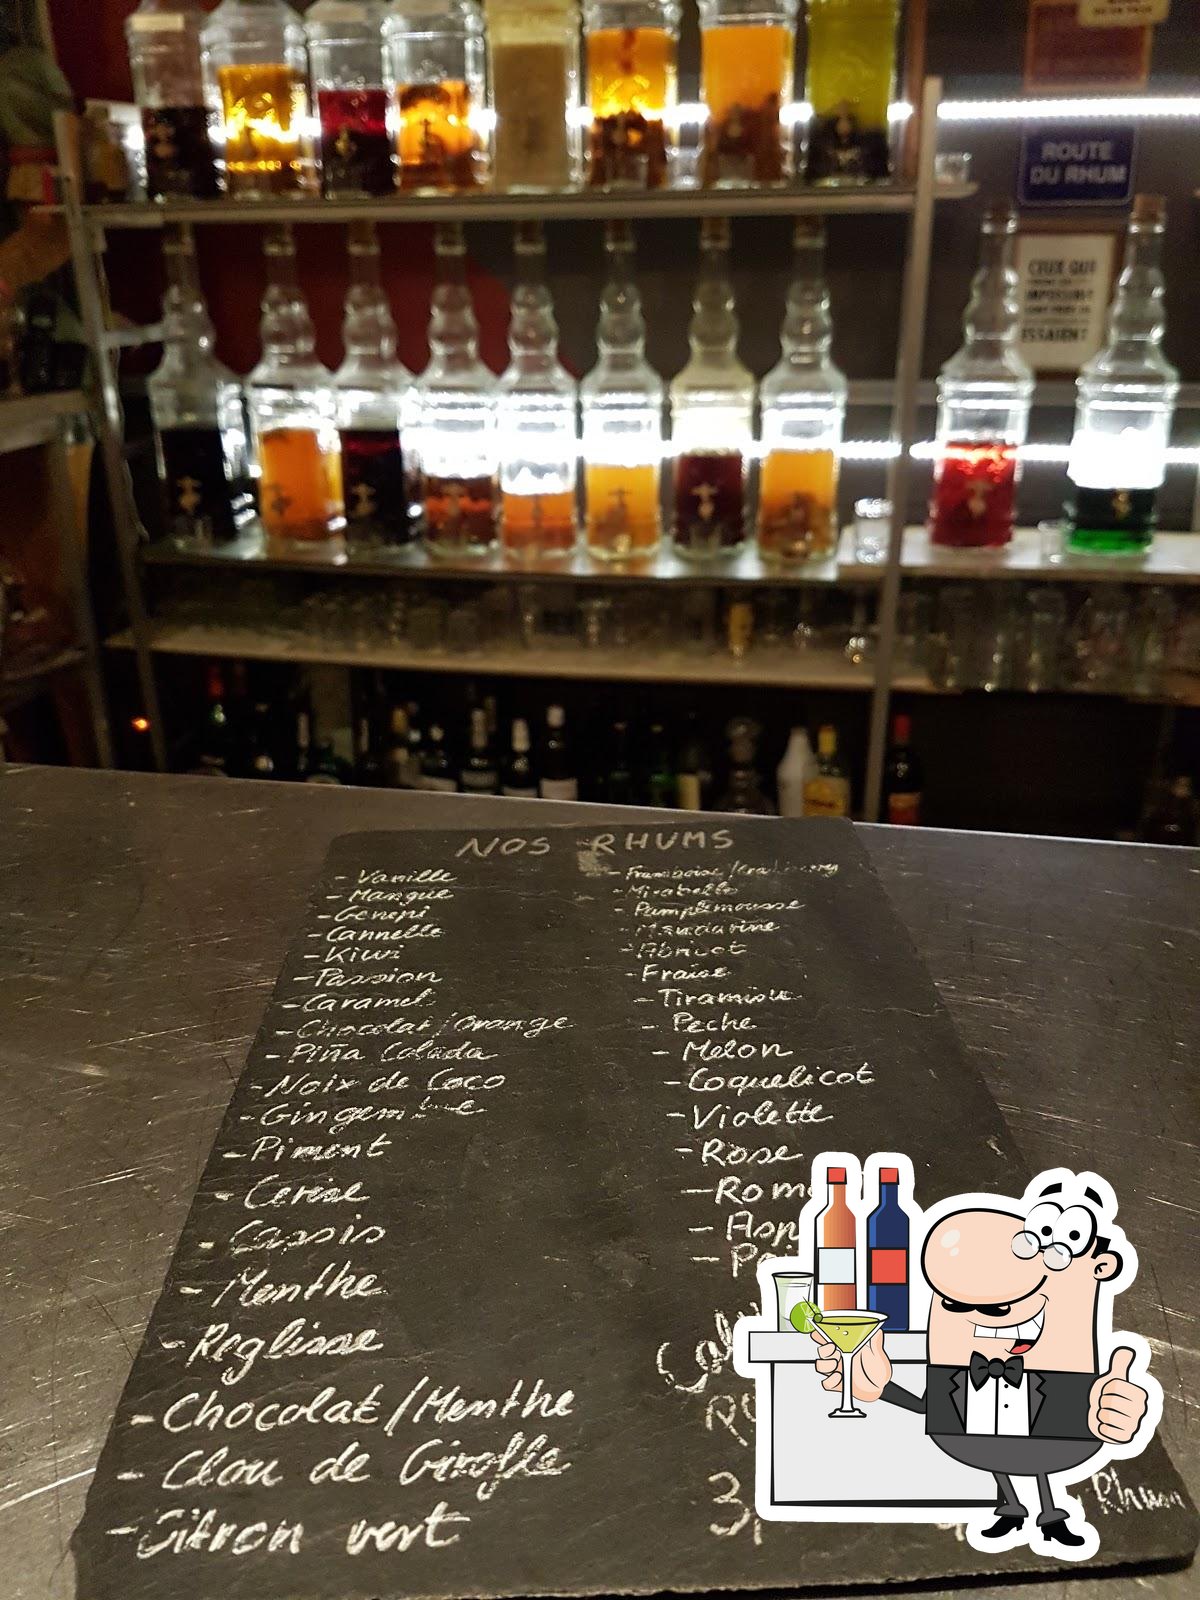 ROUTE
DU RHUM
CEUX QUI
ESSAIENT
NOS RHUMS
- Vanille
- Mangue
- Genepi
- Cannelle
- Kiwi
- Passion
- Caramel
- Chocolat/Orange
- Piña Colada
- Noix de Coco
- Gingembre
- Piment
- Cerise
- Cassis
- Menthe
- Reglisse
- Chocolat/Menthe
- Clou de Girofle
- Citron vert
- Framboise/Cranberry
- Mirabelle
- Pamplemousse
- Mandarine
- Abricot
- Fraise
- Tiramisu
- Peche
- Melon
- Coquelicot
- Violette
- Rose
- Rom
- Asp
Rhum